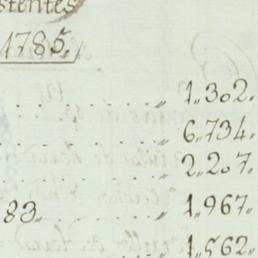 stentes
1785.
. . . . . . . „ 1„302.
6„734.
. . . . . . . „ 2„207.
83. . . . . . „ 1„967.
. . . . . . . „ 1„562.